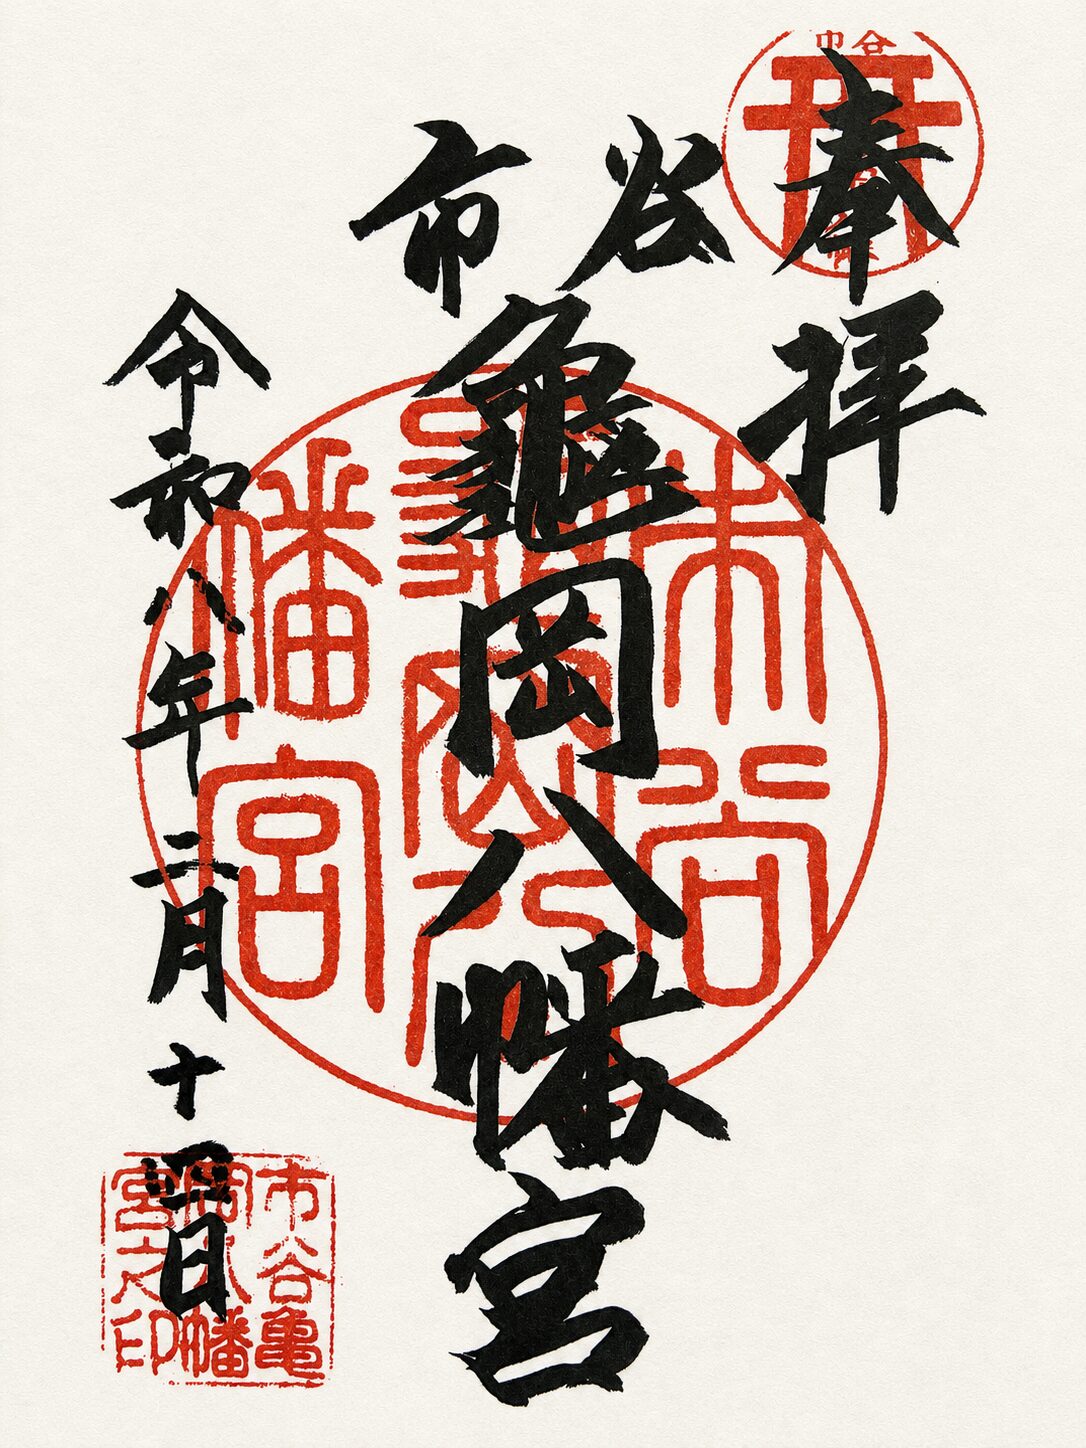 奉拝
市谷
龜岡八幡宮
令和八年二月十四日
市谷
市谷
龜岡八
幡宮
市谷亀
岡八幡
宮之印